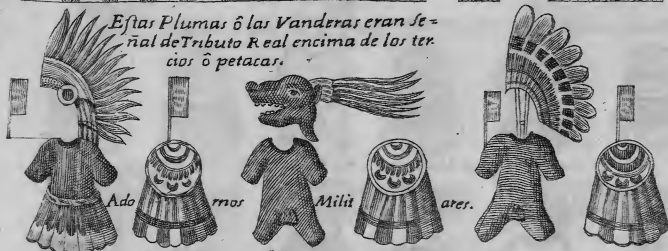 Eſtas Plumas ô las Vanderas eran ſe=
ñal de Tributo Real encima de los ter.
cios ô petacas.
Adornos Militares.